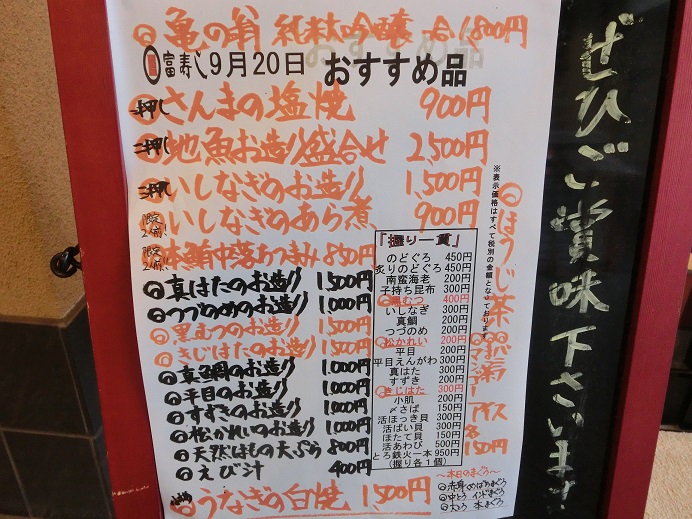 亀の翁 純米大吟醸 一合 1,800円
富寿し 9月20日 おすすめ品
一押し さんまの塩焼 900円
二押し 地魚お造り盛合せ 2,500円
三押し いしなぎのお造り 1,500円
限定2人前 いしなぎのあら煮 900円
限定2人前 本鮪中落ちつまみ 850円
真はたのお造り 1,500円
つづのめのお造り 1,000円
黒むつのお造り 1,500円
きじはたのお造り 1,500円
真鯛のお造り 1,000円
平目のお造り 1,000円
すずきのお造り 1,000円
松かれいのお造り 1,000円
天然はもの天ぷら 800円
えび汁 400円
うなぎの白焼 1,500円
「握り一貫」
のどぐろ 450円
炙りのどぐろ 450円
南蛮海老 200円
子持ち昆布 300円
黒むつ 400円
いしなぎ 300円
真鯛 200円
つづのめ 200円
松かれい 200円
平目 200円
平目えんがわ 300円
真はた 300円
すずき 200円
きじはた 300円
小肌 200円
〆さば 150円
活ほっき貝 300円
活ばい貝 300円
ほたて貝 150円
活あわび 500円
とろ鉄火一本 950円
(握り各1個)
※表示価格はすべて税別の金額となっております
ほうじ茶
アイス
各
150円
～本日のまぐろ～
赤身 めばちまぐろ
中とろ インドまぐろ
大とろ 本まぐろ
ぜひご賞味下さいます